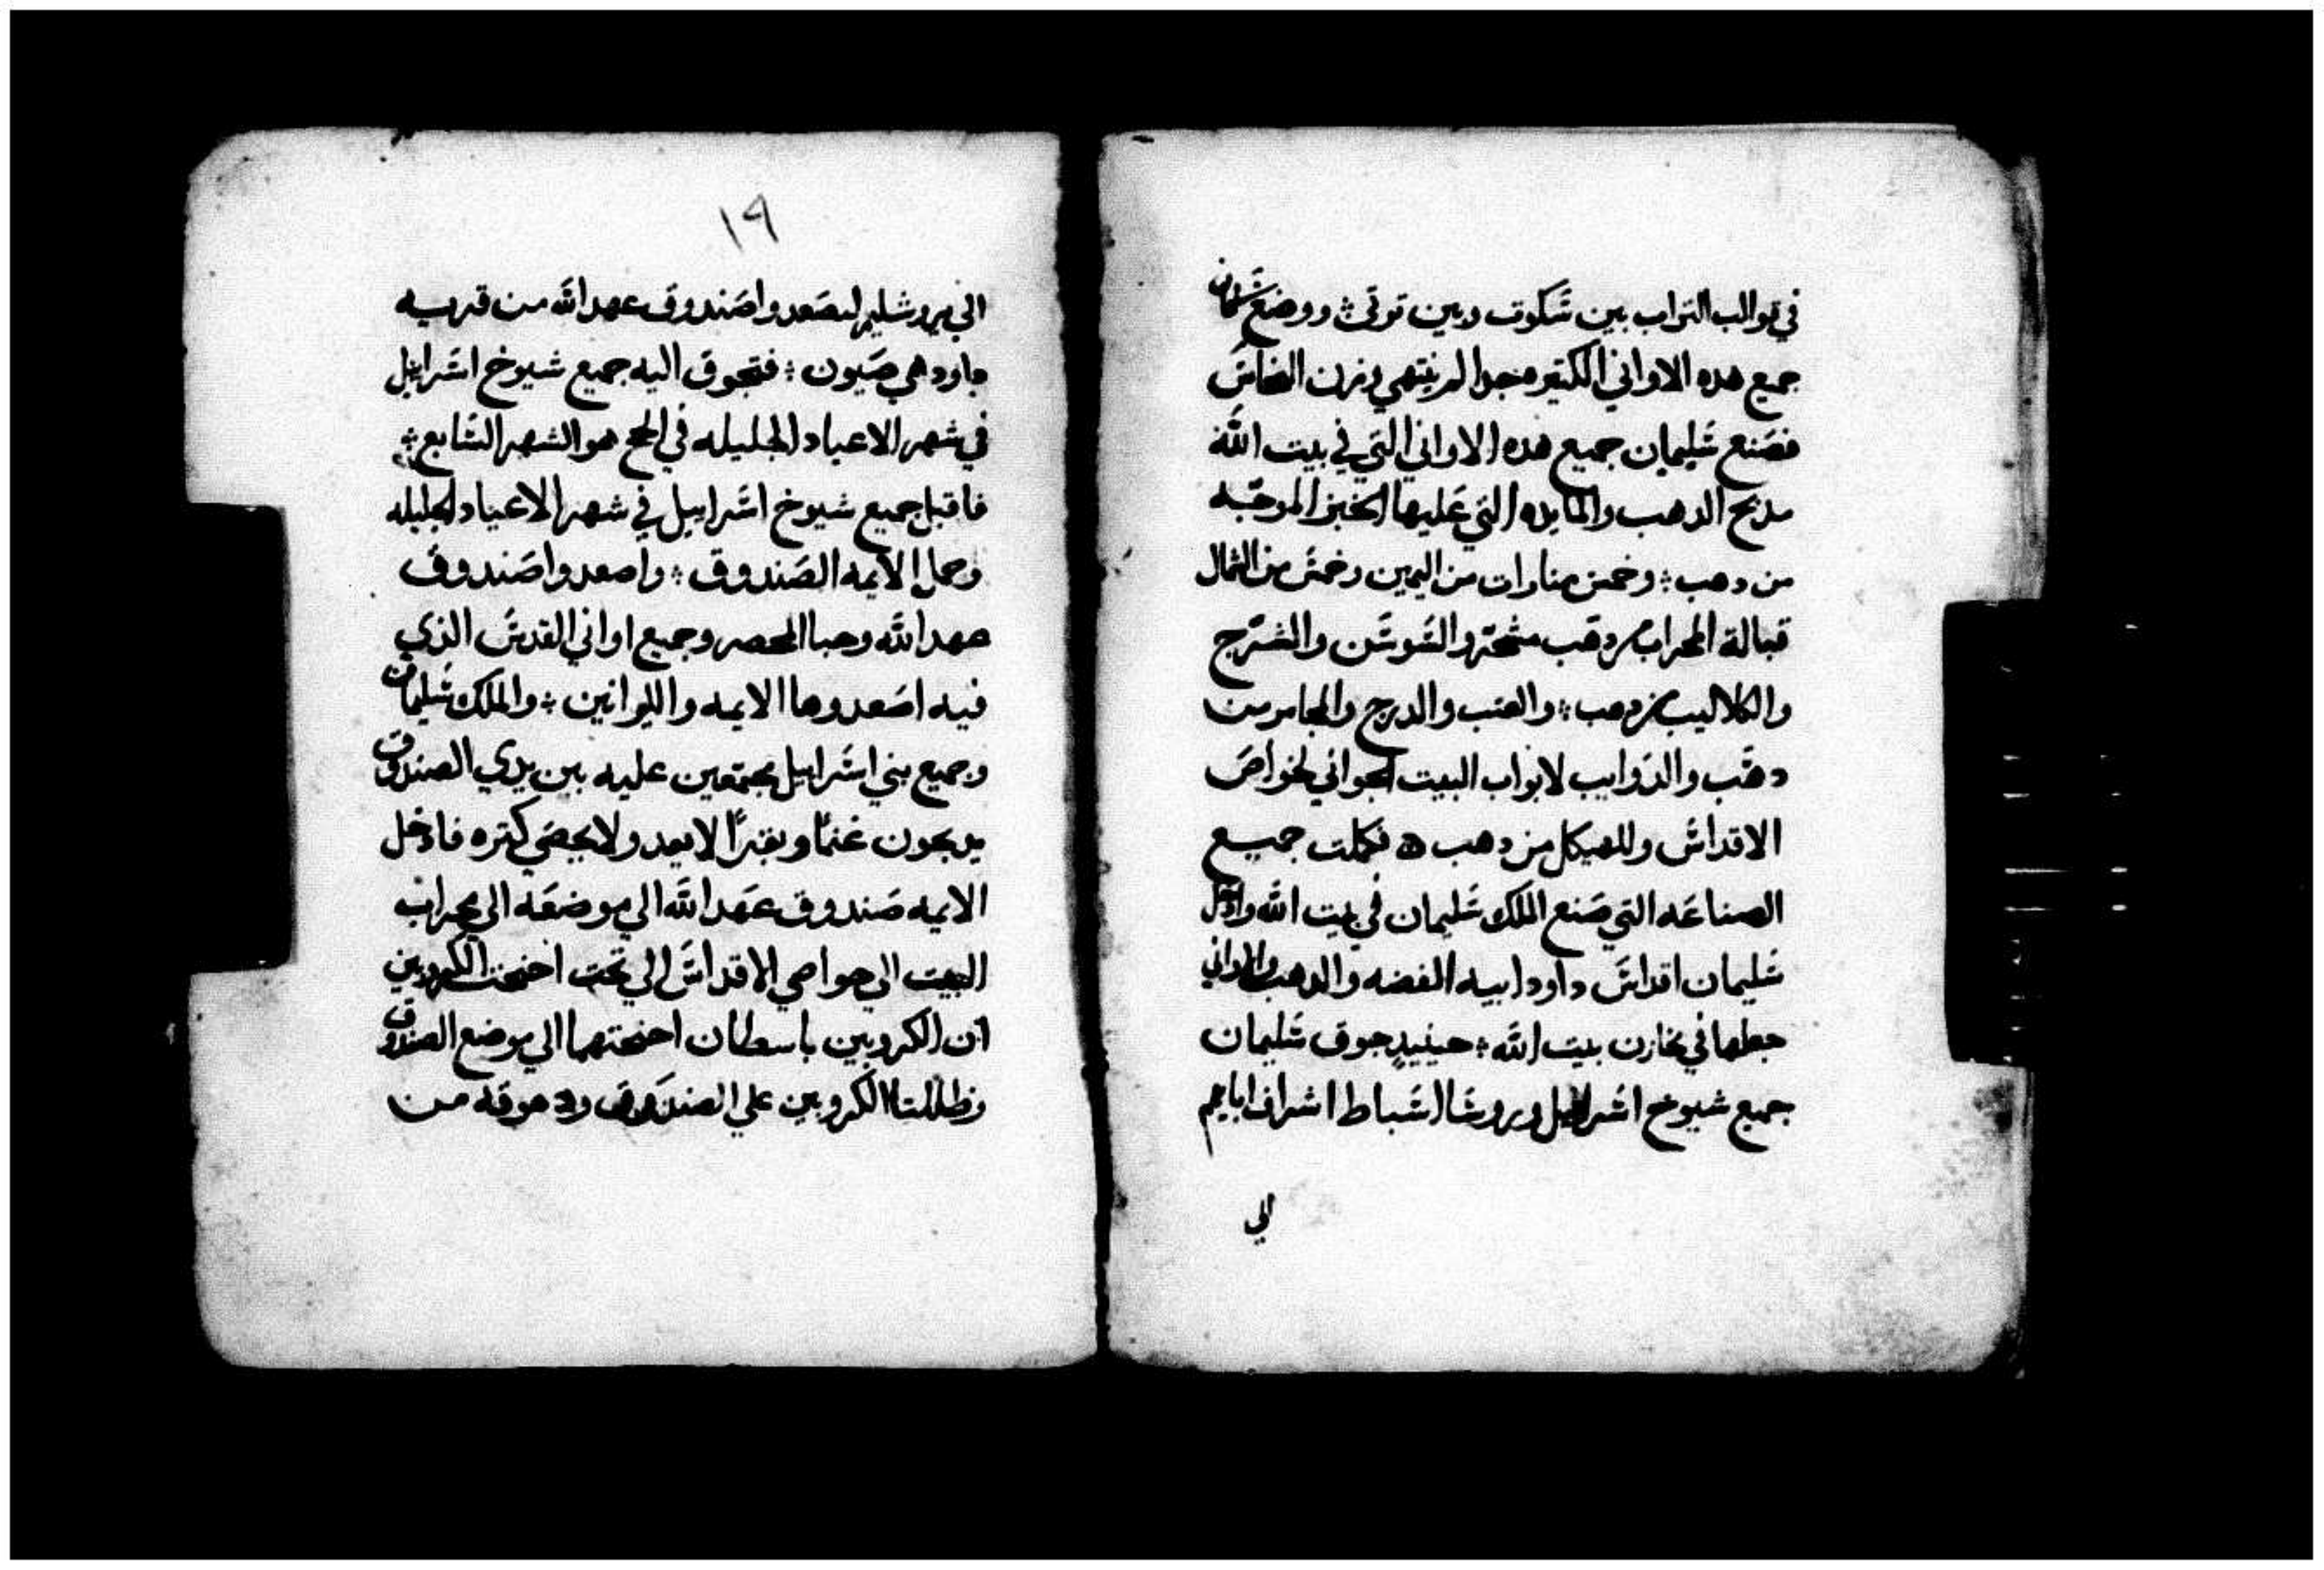 في قوالب التراب بين سكوت وبين توتي ؛ ووضع سليمان
جميع هده الاواني الكتيره جدا لم ينتهي وزن النحاس
فصنع سليمان جميع هده الاواني التي في بيت الله
مدبح الدهب والمايده التي عليها الخبز الموجبه
من دهب ؛ وخمس منارات من اليمين وخمس من الشمال
قبالة المحراب من دهب مشحر والسوسن والسرج
والكلاليب من دهب ؛ والعتب والدرج والمجامر من
دهب والزوايب لابواب البيت الجواني لخواص
الاقداس وللهيكل من دهب ه فكملت جميع
الصناعه التي صنع الملك سليمان في بيت الله وادخل
سليمان اقداس داود ابيه الفضه والدهب والاواني
جعلها في مخازن بيت الله ؛ حينيد جوق سليمان
جميع شيوخ اسراييل وروسا اسباط اشراف ابايهم
الي
١٩
الي يروشليم ليصعدوا صندوق عهد الله من قريه
داود هي صيون ؛ فتجوق اليه جميع شيوخ اسراييل
في شهر الاعياد الجليله في الحج هو الشهر السابع ؛
فاقبل جميع شيوخ اسراييل في شهر الاعياد الجليله
وحمل الايمه الصندوق ؛ واصعدوا صندوق
عهد الله وخبا المحصر وجميع اواني القدس الذي
فيه اصعدوها الايمه والليوانيين ؛ والملك سليمان
وجميع بني اسراييل مجتمعين عليه بين يدي الصندوق
يدبحون غنما وبقرا لا يعد ولا يحصي كتره فادخل
الايمه صندوق عهد الله الي موضعه الي محراب
البيت الي خواص الاقداس الي تحت اجنحت الكروبين
ان الكروبين باسطان اجنحتهما الي موضع الصندوق
وظللتا الكروبين علي الصندوق و دهوقه من